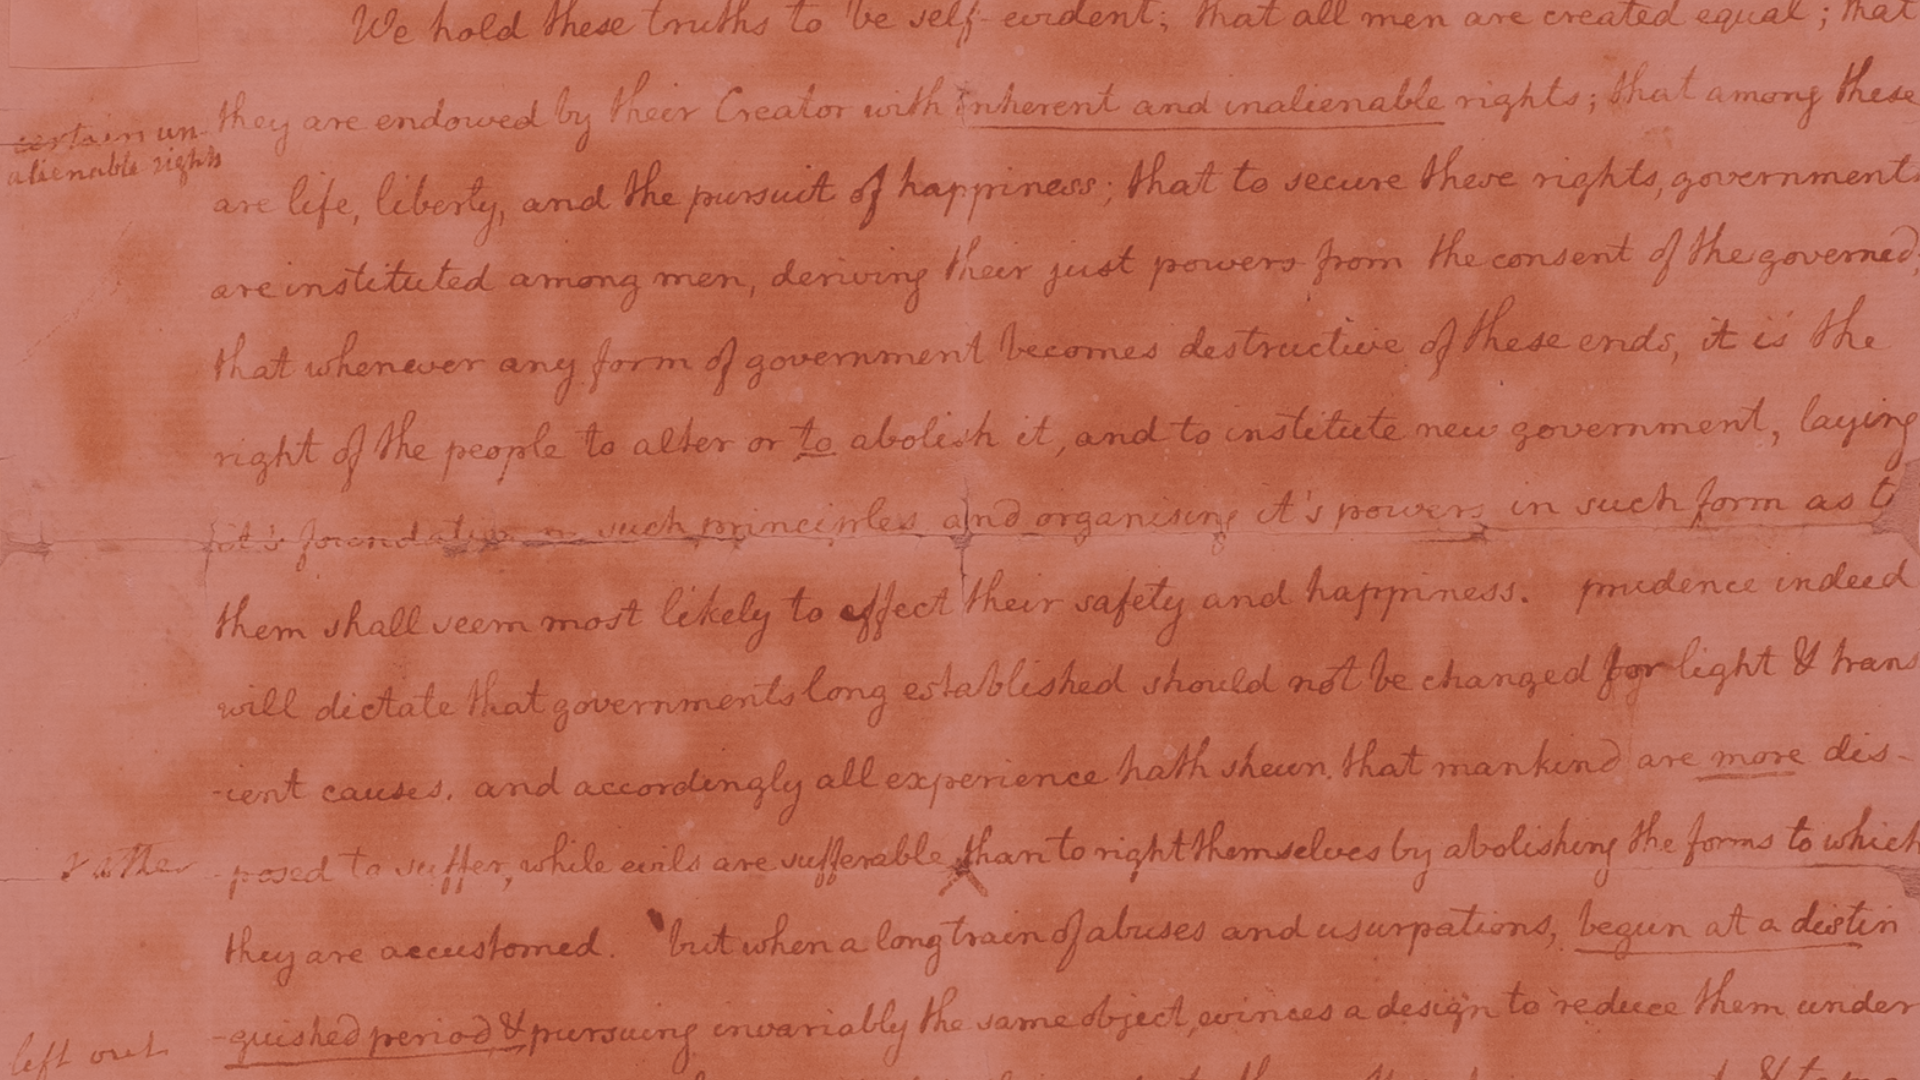 We hold these truths to be self-evident; that all men are created equal; that
they are endowed by their Creator with inherent and inalienable rights; that among these
certain un-
alienable rights
are life, liberty, and the pursuit of happiness; that to secure these rights, governments
are instituted among men, deriving their just powers from the consent of the governed;
that whenever any form of government becomes destructive of these ends, it is the
right of the people to alter or to abolish it, and to institute new government, laying
it's foundation on such principles and organising it's powers in such form as to
them shall seem most likely to effect their safety and happiness. prudence indeed
will dictate that governments long established should not be changed for light & trans
-ient causes. and accordingly all experience hath shewn that mankind are more dis-
rather
posed to suffer, while evils are sufferable than to right themselves by abolishing the forms to which
they are accustomed. but when a long train of abuses and usurpations, begun at a distin
left out
-guished period, & pursuing invariably the same object, evinces a design to reduce them under